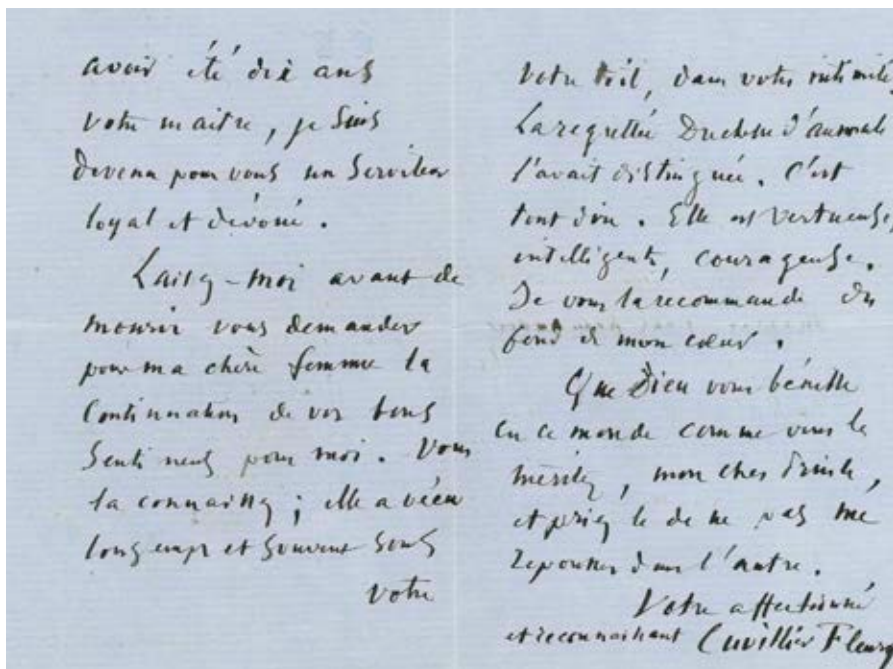 avoir été dix ans
votre maitre, je suis
devenu pour vous un serviteur
loyal et dévoué.
Laissez-moi avant de
mourir vous demander
pour ma chère femme la
continuation de vos bons
sentiments pour moi. Vous
la connaissez ; elle a vécu
longtemps et souvent sous
votre
votre toit, dans votre intimité,
La regrettée Duchesse d'aumale
l'avait distinguée. C'est
tout dire. Elle est vertueuse,
intelligente, courageuse.
Je vous la recommande du
fond de mon cœur.
Que Dieu vous bénisse
en ce monde comme vous le
méritez, mon cher Prince,
et priez le de ne pas me
repousser dans l'autre.
Votre affectionné
et reconnaissant Cuvillier Fleury